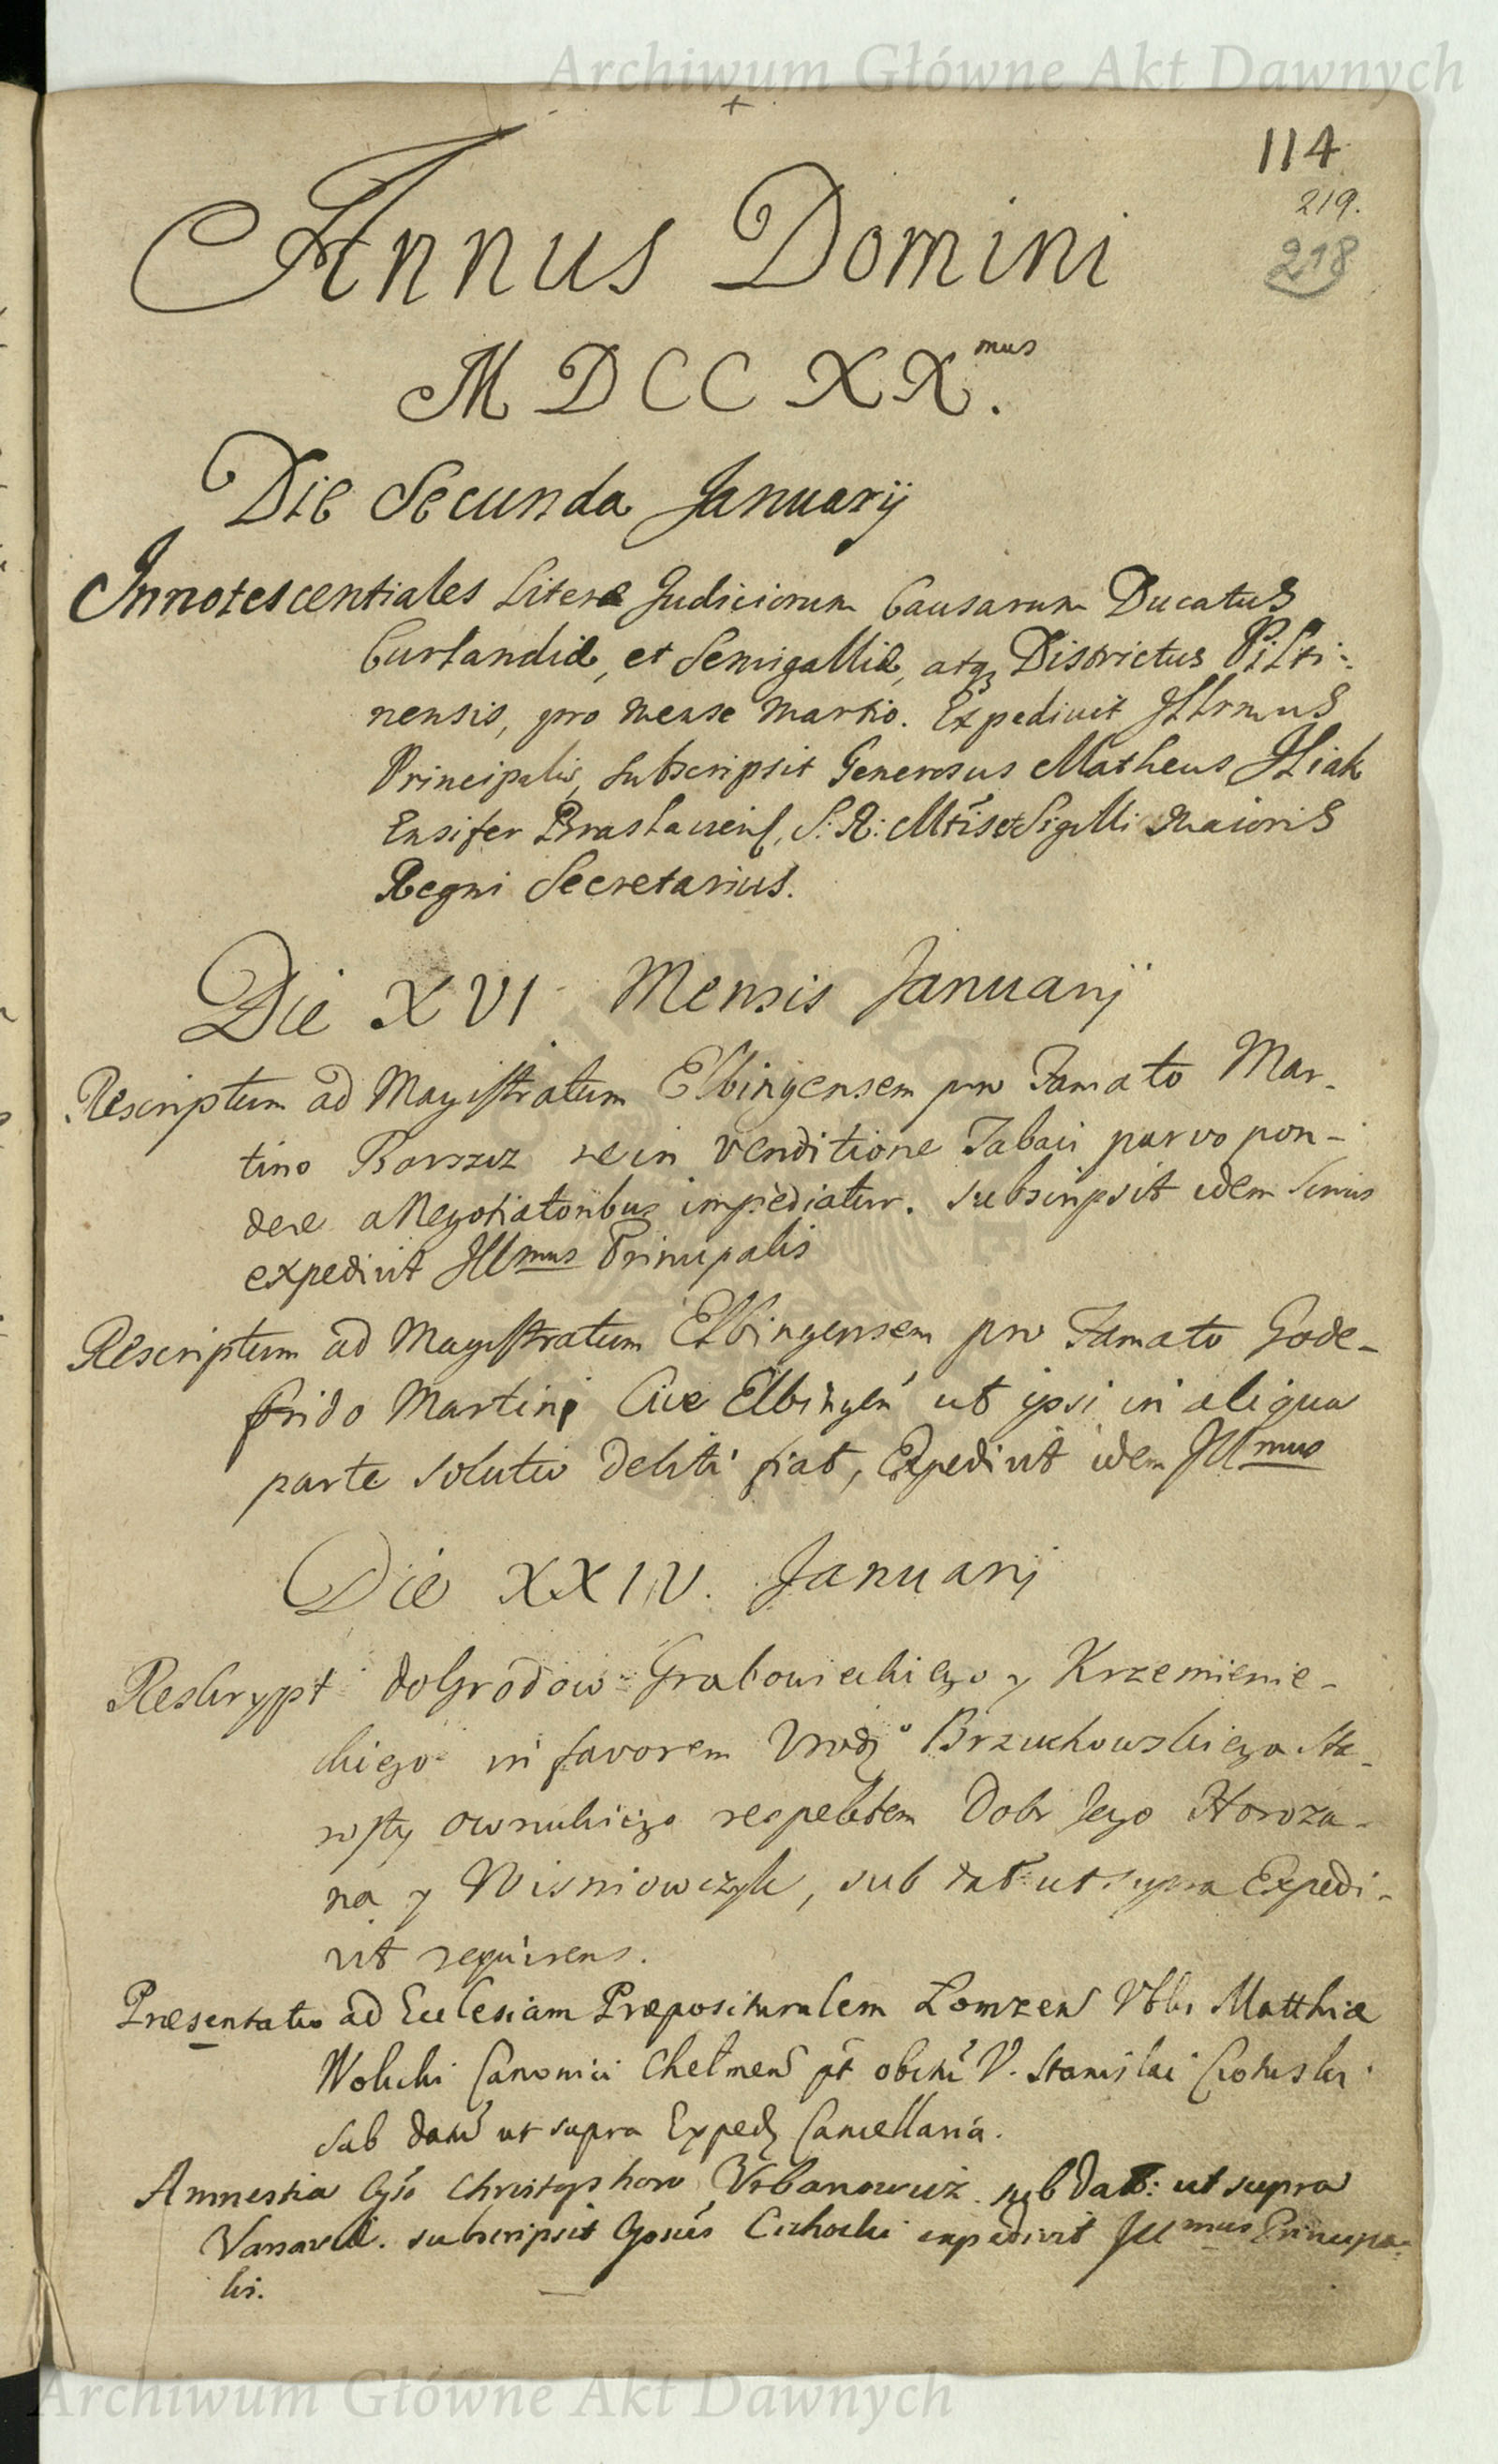 Archiwum Główne Akt Dawnych
114
219.
218
Annus Domini
MDCCXX mus.
Die Secunda Januarij
Innotescentiales Literæ Judiciorum Causarum Ducatus
Curlandiæ, et Semigalliæ, atq3 Districtus Pilti-
nensis, pro mense Martio. Expedivit Illrmus
Principalis, subscripsit Generosus Matheus Iliak
Ensifer Braslaviens, S: R: Mtis et Sigilli Maioris
Regni Secretarius.
Die XVI Mensis Januarij
Rescriptum ad Magistratum Elbingensem pro Famato Mar-
tino Barszcz ne in venditione Tabaci parvo pon-
dere a Negotiatoribus impediatur. subscripsit idem
expedivit Illmus Principalis
Rescriptum ad Magistratum Elbingensem pro Famato Gode-
frido Martini Cive Elbingen ut ipsi in aliqua
parte solutio debiti fiat, Expedivit idem Illmus
Die XXIV. Januarij
Reskrypt do Grodow Grabowieckiego y Krzemienie-
ckiego in favorem Urodz° Brzuchowskiego Sta-
rosty respektem Dobr Jego Horoza-
na y Wisniowczyk, sub dat ut supra Expedi-
vit requirens.
Præsentatio ad Ecclesiam Præposituralem Łomzen Vbli Matthiæ
Wolicki Canonici Chełmen pt obitu V. Stanislai
sub datu ut supra Exped Cancellaria.
Amnestia Gso Christophoro Urbanowicz sub Dat: ut supra
Varsaviæ. subscripsit Gosus Cichocki expedivit Illmus Principa-
lis.
Archiwum Główne Akt Dawnych